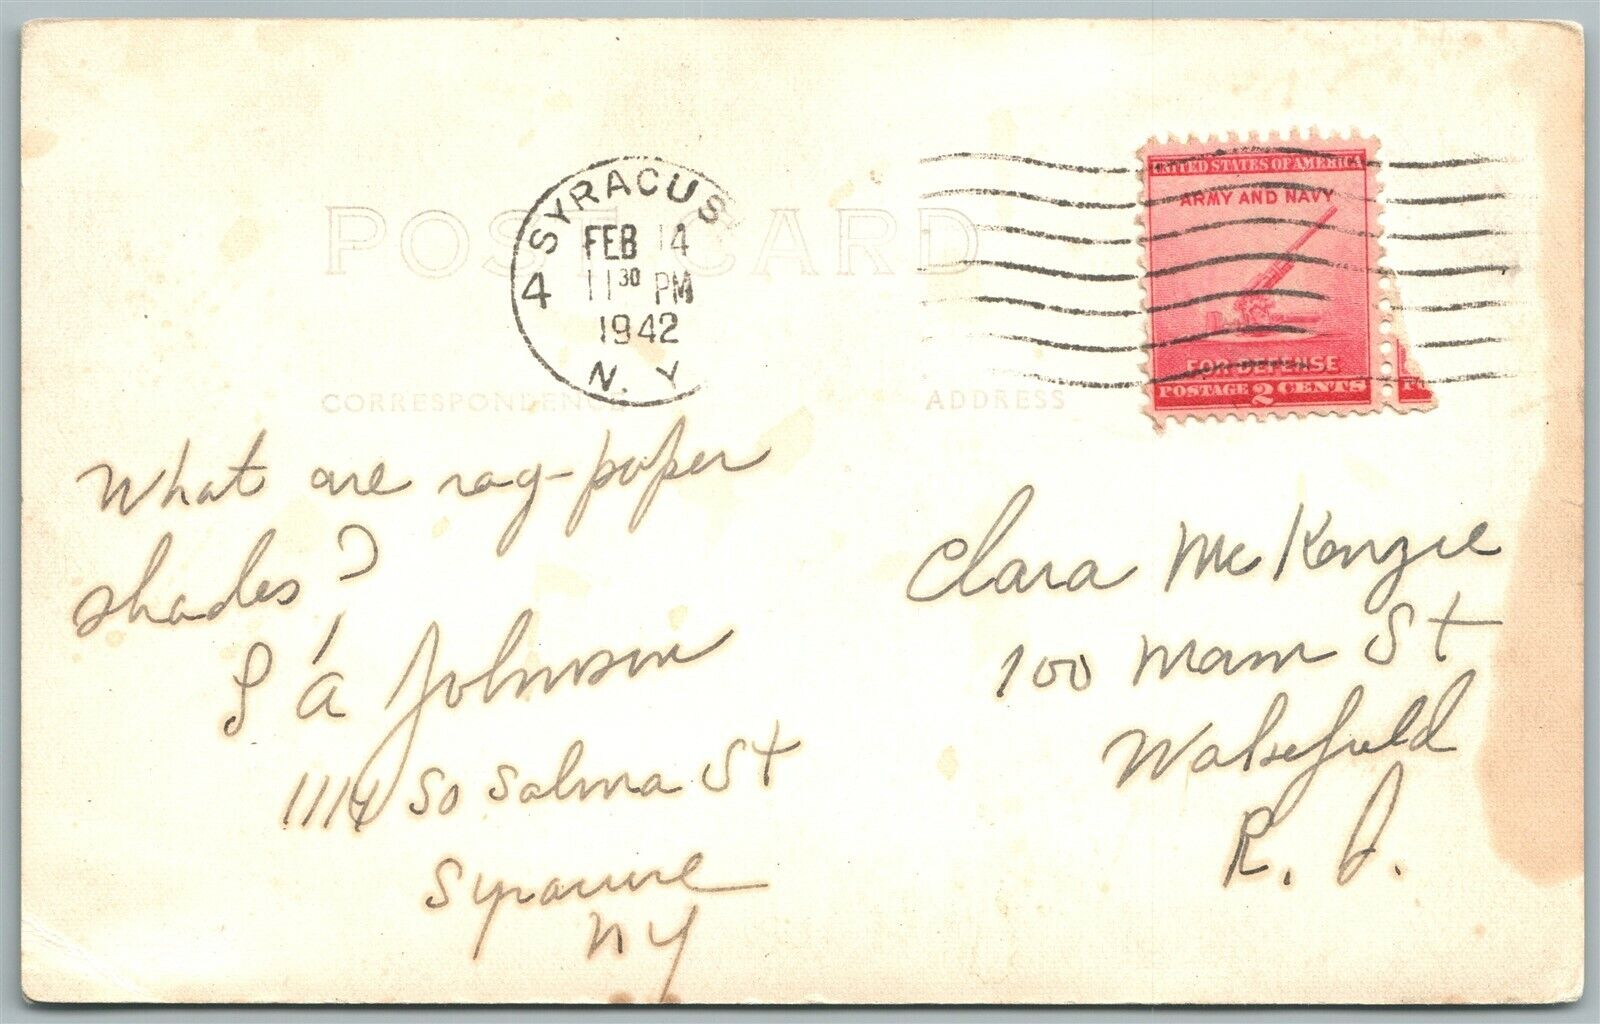 POST CARD
4 SYRACUS
FEB 14
11 30 PM
1942
N. Y
UNITED STATES OF AMERICA
ARMY AND NAVY
FOR DEFENSE
POSTAGE 2 CENTS
CORRESPONDENCE
ADDRESS
What are rag-paper
shades?
A Johnson
1114 So Salina St
Syracuse
NY
Clara McKenzie
100 Main St
Wakefield
R. I.